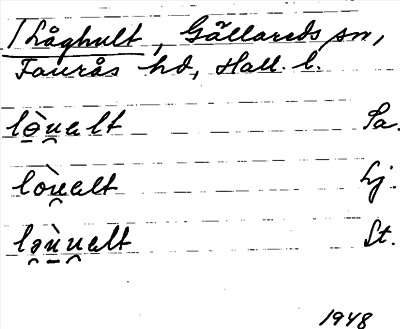 / Låghult, Gällareds sn,
Faurås hd, Hall. l.
lò̱u̯alt Sa.
lòu̯alt Lj.
lə̯ù̱u̯alt St.
1948